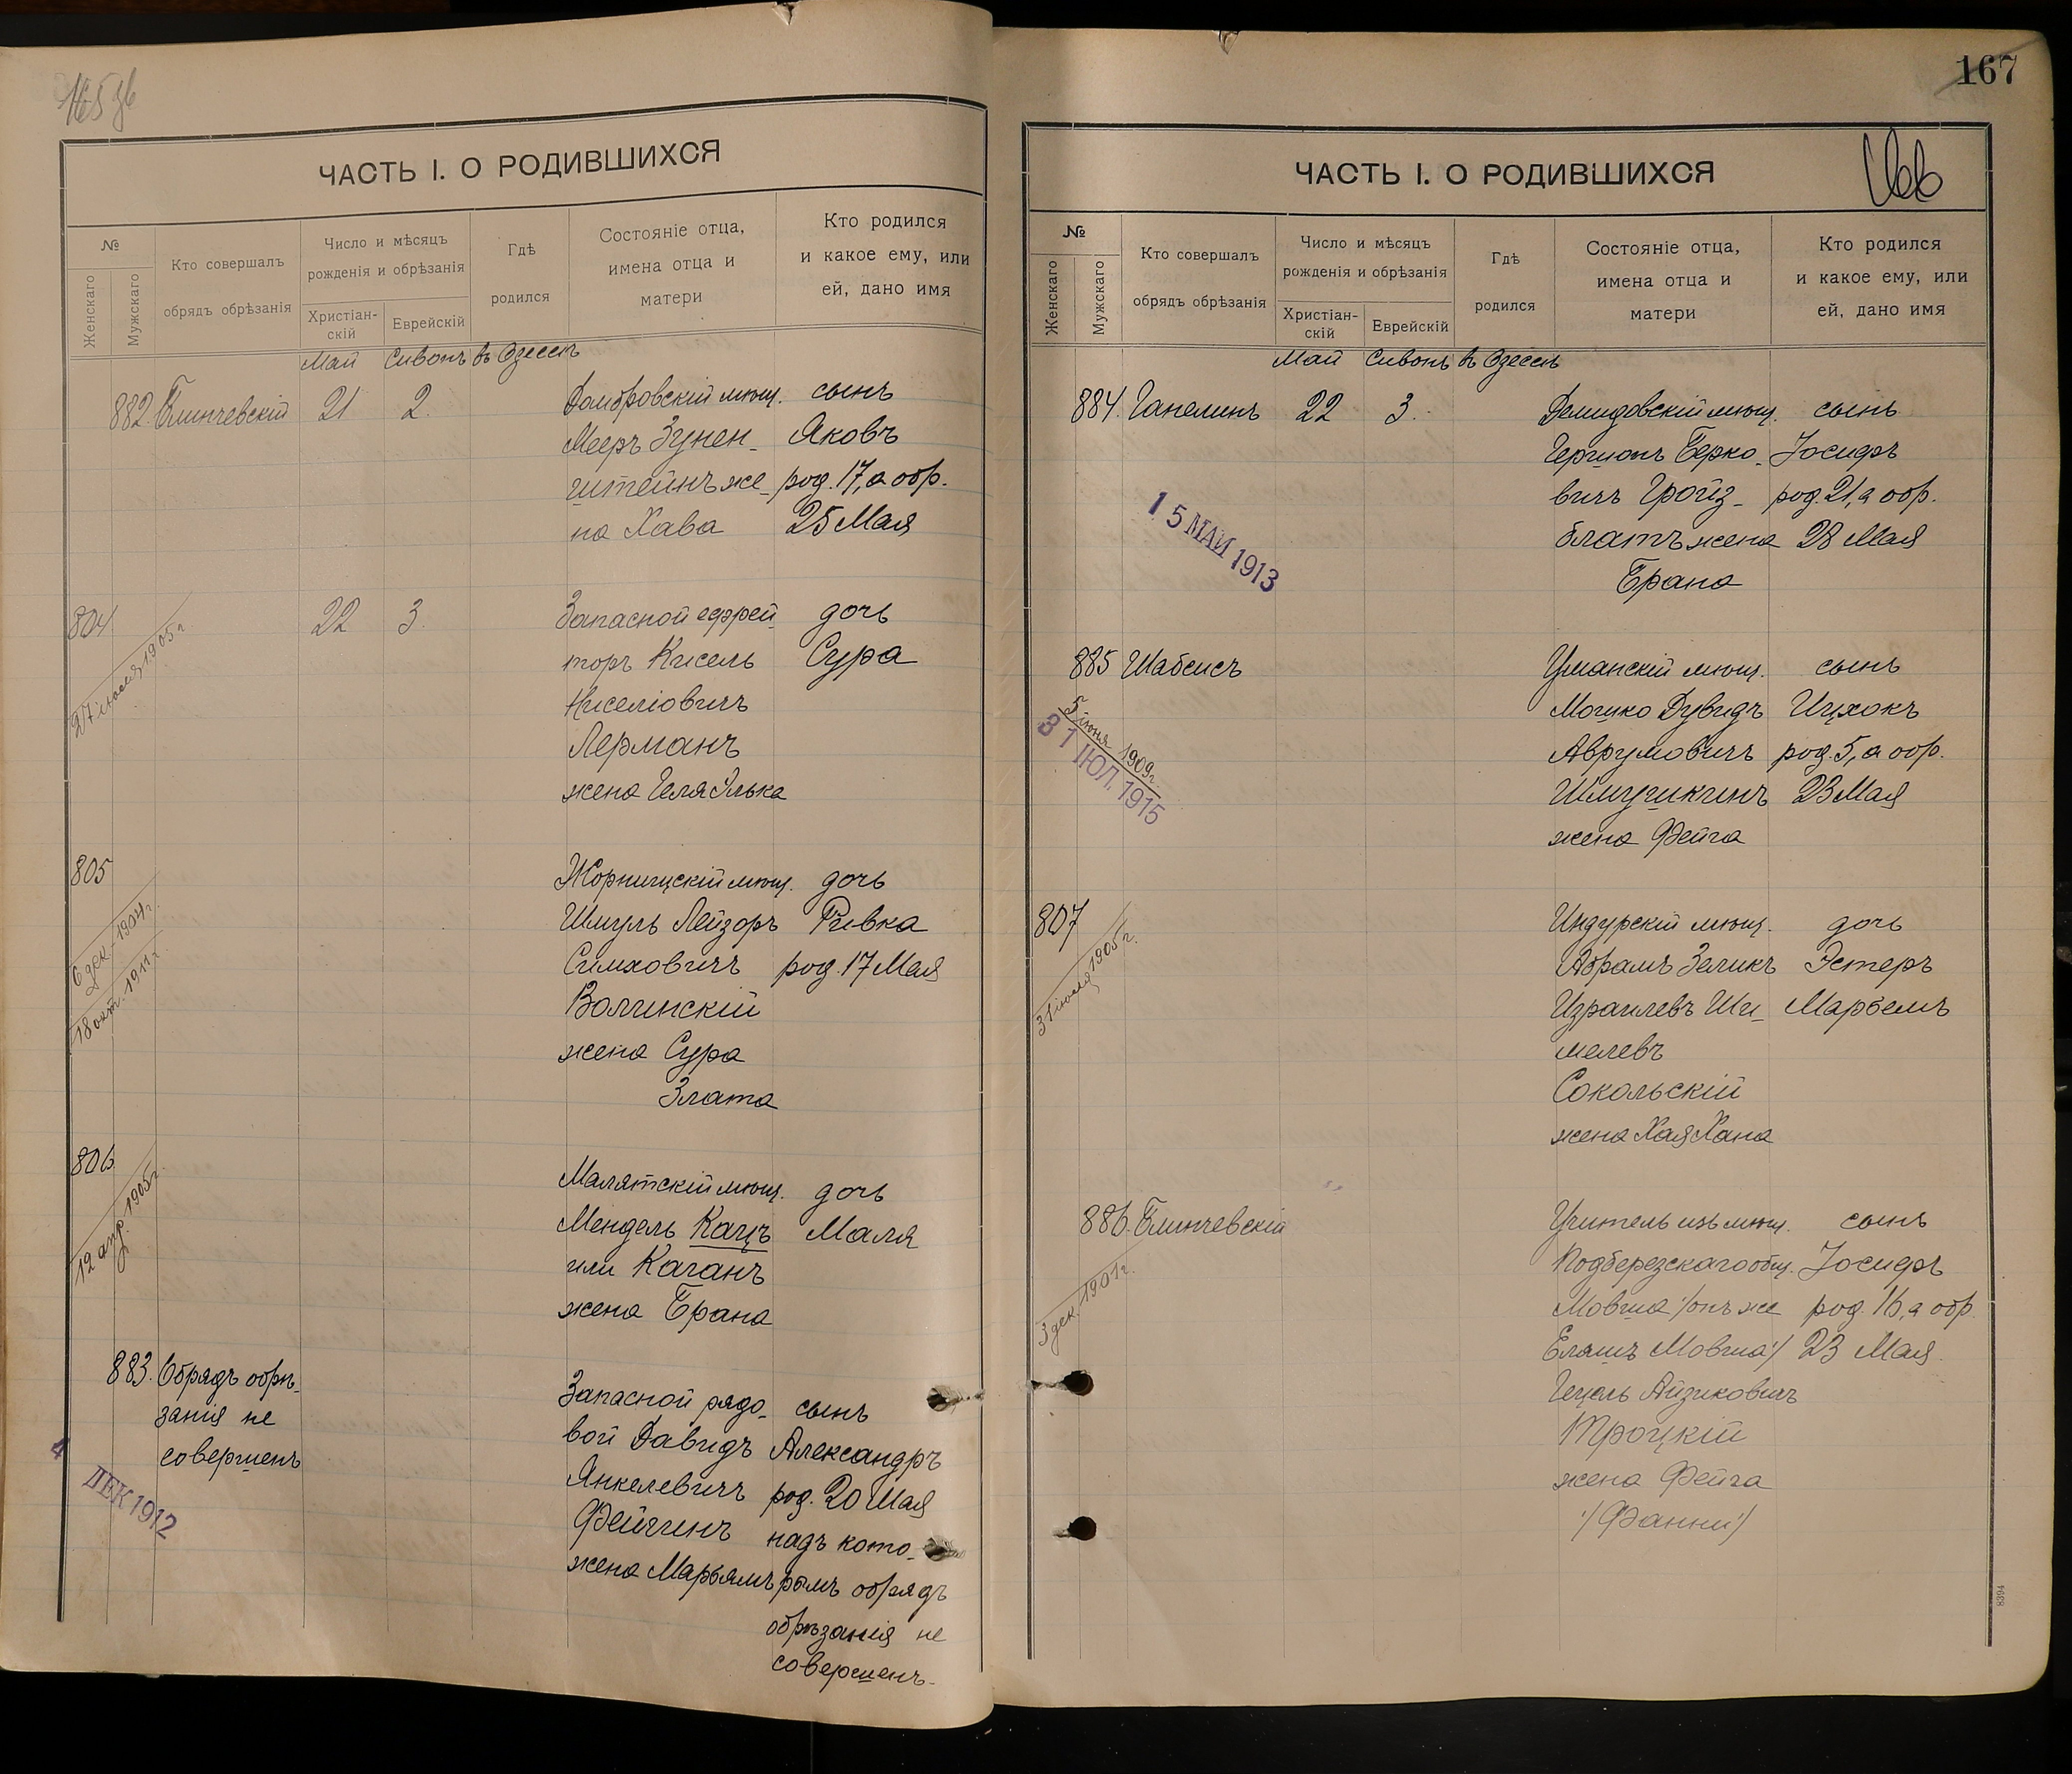 165 об
ЧАСТЬ I. О РОДИВШИХСЯ
№
Женскаго
Мужскаго
Кто совершалъ
обрядъ обрѣзанія
Число и мѣсяцъ
рожденія и обрѣзанія
Христіан-
скій
Еврейскій
Гдѣ
родился
Состояніе отца,
имена отца и
матери
Кто родился
и какое ему, или
ей, дано имя
Май Сивонъ въ Одессѣ
882. Блинчевскій 21 2. Домбровскій мѣщ. сынъ
Мееръ Зунен- Яковъ
штейнъ же- род. 17, а обр.
на Хава 25 Мая
804 22 3. Запасной ефрей- дочь
27 іюля 1905 г.
торъ Кисель Сура
Киселіовичъ
Лерманъ
жена Геля Элька
805 Жорнищскій мѣщ. дочь
6 дек. 1904 г.
18 окт. 1911 г.
Шмуль Лейзоръ Ривка
Симховичъ род. 17 Мая
Волчинскій
жена Сура
Злата
806 Малятскій мѣщ. дочь
12 апр. 1905 г.
Мендель Кацъ Маля
или Каганъ
жена Брана
883. Обрядъ обрѣ- Запасной рядо- сынъ
занія не вой Давидъ Александръ
совершенъ Янкелевичъ род. 20 Мая
4 ДЕК 1912
Фейгинъ надъ кото-
жена Марьямъ рымъ обрядъ
обрѣзанія не
совершенъ.
167
166
ЧАСТЬ I. О РОДИВШИХСЯ
№
Женскаго
Мужскаго
Кто совершалъ
обрядъ обрѣзанія
Число и мѣсяцъ
рожденія и обрѣзанія
Христіан-
скій
Еврейскій
Гдѣ
родился
Состояніе отца,
имена отца и
матери
Кто родился
и какое ему, или
ей, дано имя
Май Сивонъ въ Одессѣ
884. Ганелинъ 22 3. Демидовскій мѣщ. сынъ
Гершонъ Берко- Іосифъ
вичъ Гройз- род. 21, а обр.
15 МАЙ 1913
блатъ жена 28 Мая
Брана
885 Шабсисъ Уманскій мѣщ. сынъ
5 іюня 1909 г.
31 ІЮЛ. 1915
Мошко Дувидъ Ицхокъ
Аврумовичъ род. 5, а обр.
Шмушкинъ 23 Мая
жена Фейга
807 Индурскій мѣщ. дочь
31 іюля 1905 г.
Абрамъ Зеликъ Эстеръ
Израилевъ Ши- Марьемъ
мелевъ
Сокольскій
жена Хая Хана
886. Блинчевскій Учитель изъ мѣщ. сынъ
3 дек. 1901 г.
Подберезскаго общ. Іосифъ
Мовша /онъ же род. 16, а обр.
Еляшъ Мовша/ 23 Мая
Гецель Айзиковичъ
Троцкій
жена Фейга
/Фанни/
8394